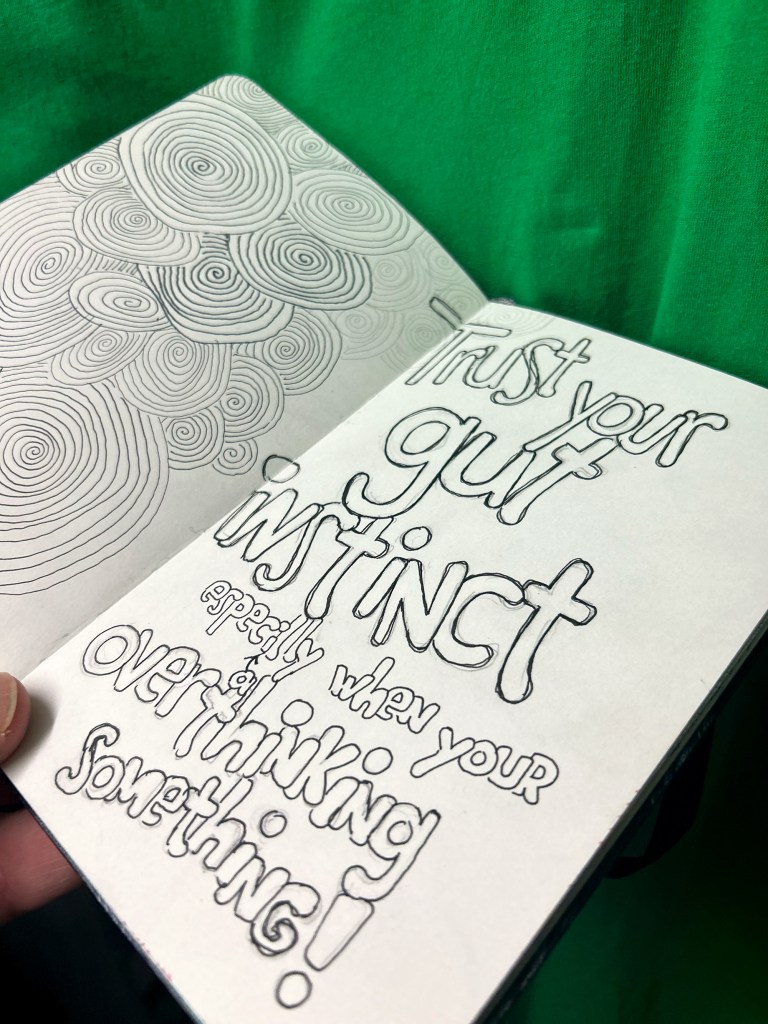 Trust your
gut
instinct
especilly when YOUR
a
overthinking
SomethiNG!